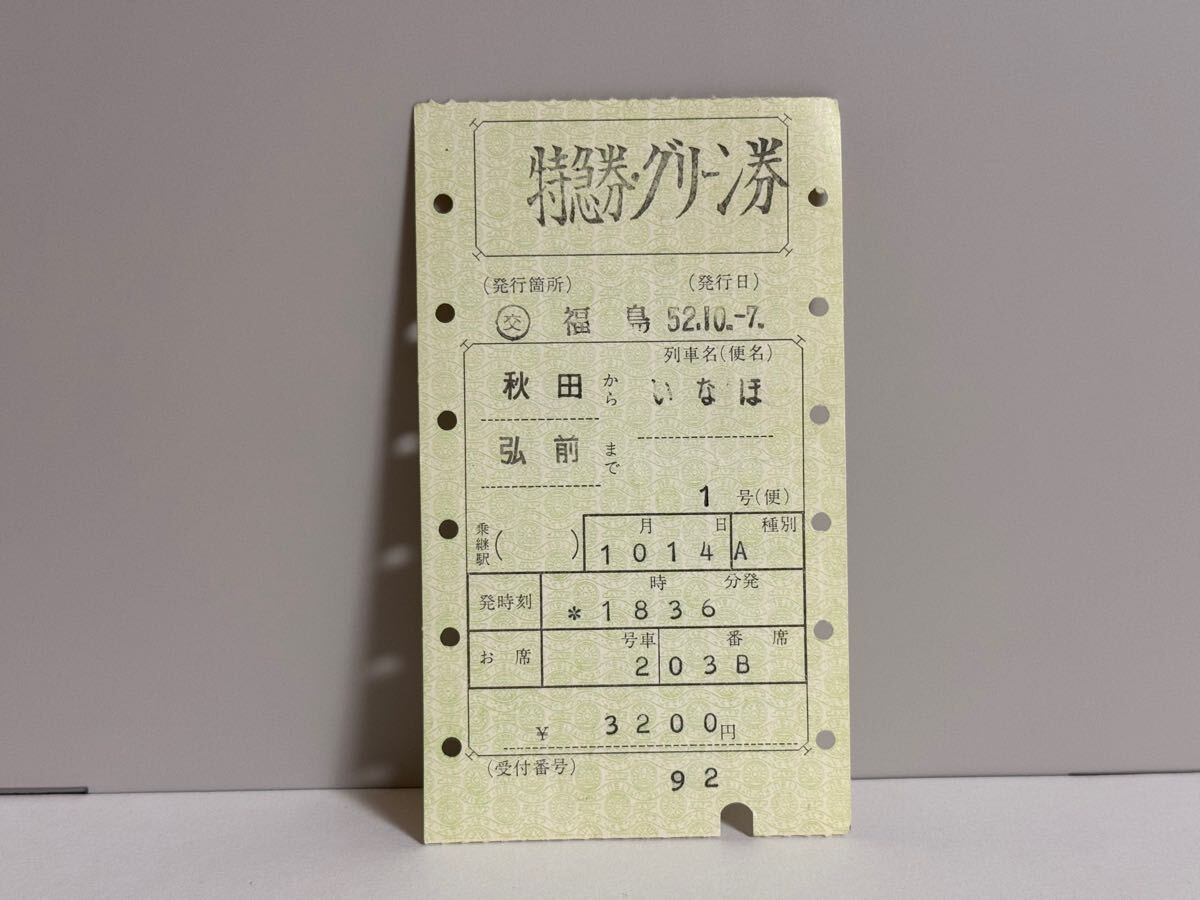 特急券・グリーン券
(発行箇所) (発行日)
交 福島 52.10.-7.
列車名(便名)
秋田から いなほ
弘前まで
1号(便)
乗継駅( ) 月 日 種別
1014 A
発時刻 時 分発
*1836
お席 号車 番 席
2 03B
¥ 3200円
(受付番号) 92